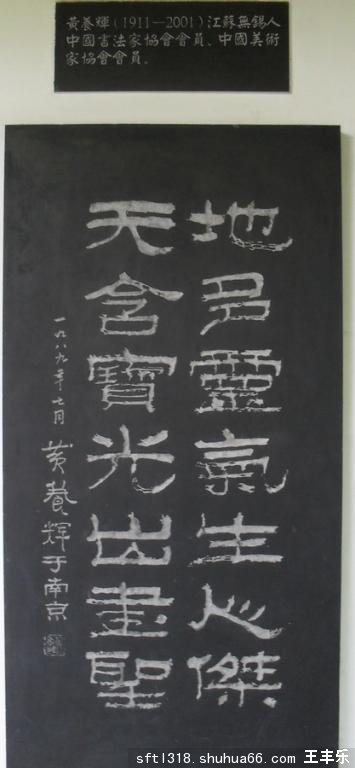 黃養輝(1911—2001)江蘇無錫人
中國書法家協會會員、中國美術
家協會會員。
地多靈氣生人傑
天含寶光出畫聖
一九八九年七月 黃養輝于南京
sftl318.shuhua66.com 王丰乐